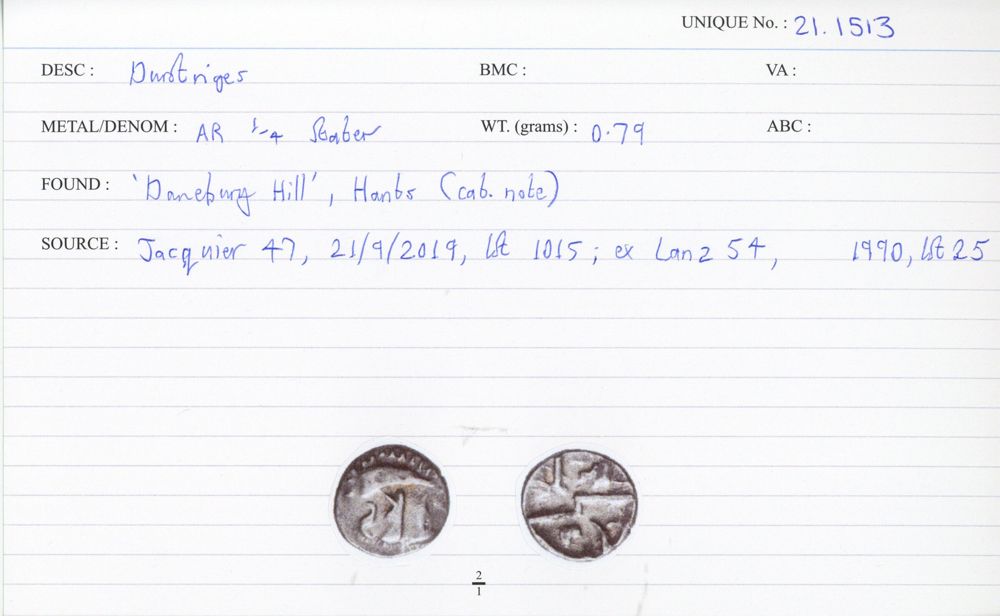 UNIQUE No. : 21.1513
DESC : Durotriges BMC : VA :
METAL/DENOM : AR 1/4 Stater WT. (grams) : 0.79 ABC :
FOUND : 'Danebury Hill', Hants (cab. note)
SOURCE : Jacquier 47, 21/9/2019, lot 1015; ex Lanz 54, 1990, lot 25
2
1